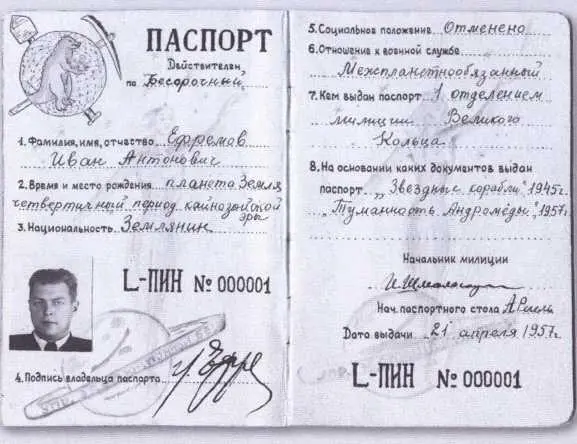 ПАСПОРТ
Действителен
по Бессрочный
1. Фамилия, имя, отчество Ефремов
Иван Антонович
2. Время и место рождения планета Земля
четвертичный период кайнозойской
эры
3. Национальность Землянин
L-ПИН № 000001
4. Подпись владельца паспорта И Ефре
5. Социальное положение Отменено
6. Отношение к военной службе
Межпланетнообязанный
7. Кем выдан паспорт 1 отделением
милиции Великого
Кольца
8. На основании каких документов выдан
паспорт „Звездные корабли", 1945г.
„Туманность Андромеды", 1957г.
Начальник милиции
Нач. паспортного стола
Дата выдачи 21 апреля 1957г.
L-ПИН № 000001